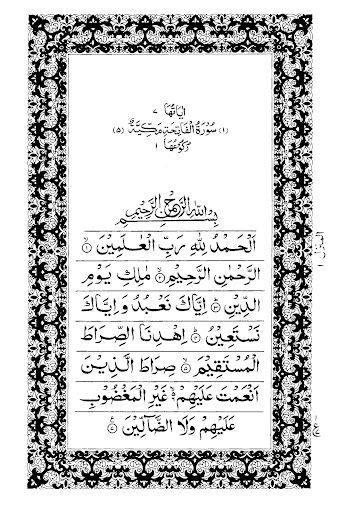 اٰيَاتُهَا ٧
(١) سُوْرَةُ الْفَاتِحَةِ مَكِّيَّةٌ (٥)
رُكُوْعُهَا ١
بِسْمِ اللّٰهِ الرَّحْمٰنِ الرَّحِيْمِ
اَلْحَمْدُ لِلّٰهِ رَبِّ الْعٰلَمِيْنَ ۝١
الرَّحْمٰنِ الرَّحِيْمِ ۝٢ مٰلِكِ يَوْمِ
الدِّيْنِ ۝٣ اِيَّاكَ نَعْبُدُ وَ اِيَّاكَ
نَسْتَعِيْنُ ۝٤ اِهْدِنَا الصِّرَاطَ
الْمُسْتَقِيْمَ ۝٥ صِرَاطَ الَّذِيْنَ
اَنْعَمْتَ عَلَيْهِمْ ۝٦ غَيْرِ الْمَغْضُوْبِ
عَلَيْهِمْ وَلَا الضَّآلِّيْنَ ۝٧
المنزل ١